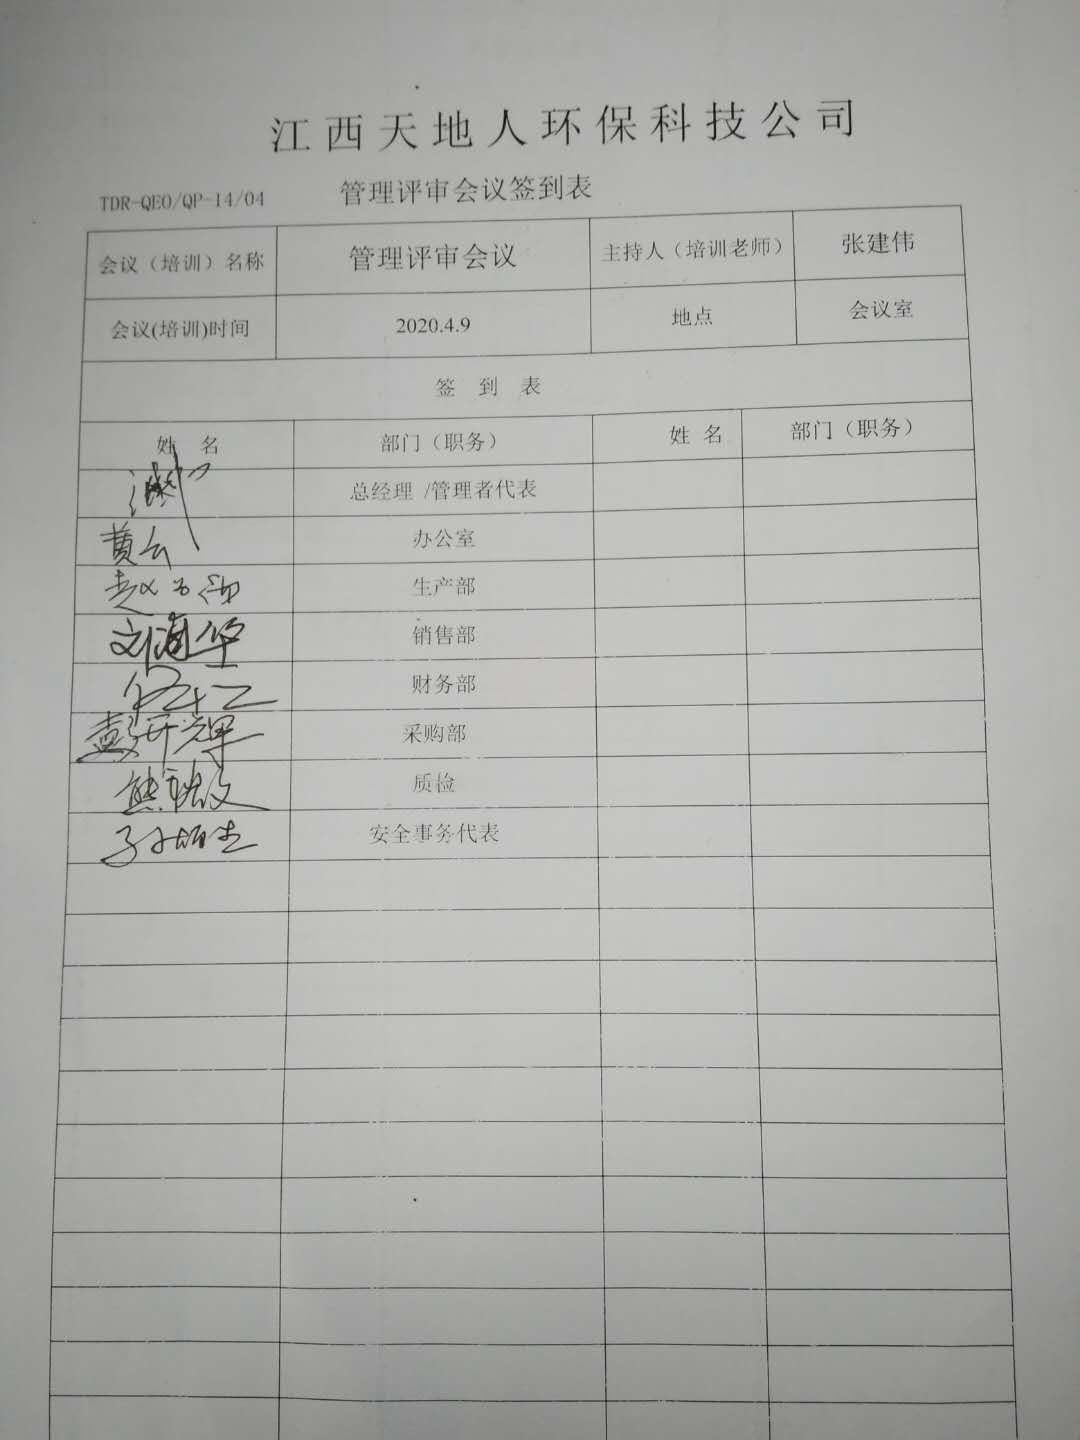 江西天地人环保科技公司
TDR-QEO/QP-14/04 管理评审会议签到表
会议（培训）名称 管理评审会议 主持人（培训老师） 张建伟
会议(培训)时间 2020.4.9 地点 会议室
签 到 表
姓 名 部门（职务） 姓 名 部门（职务）
总经理 /管理者代表
黄云 办公室
赵 生产部
刘海华 销售部
财务部
彭开辉 采购部
熊 质检
安全事务代表